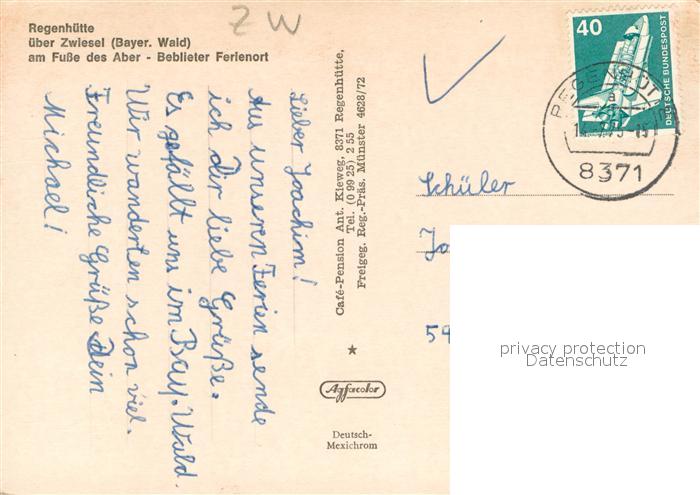 ZW
Regenhütte
über Zwiesel (Bayer. Wald)
am Fuße des Aber - Beblieter Ferienort
Lieber Joachim!
Aus unseren Ferien sende
ich dir liebe Grüße.
Es gefällt uns im Bay. Wald.
Wir wanderten schon viel.
Freundliche Grüße Dein
Michael!
Café-Pension Ant. Kleweg, 8371 Regenhütte,
Tel. (0 99 25) 2 55
Freigeg. Reg.-Präs. Münster 4628/72
Agfacolor
Deutsch-
Mexichrom
40
DEUTSCHE BUNDESPOST
a
8371
Schüler
Jo
54
privacy protection
Datenschutz